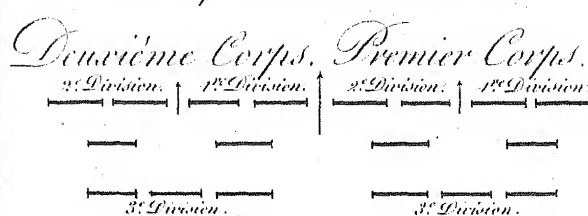 Deuxiéme Corps. Premier Corps.
2e. Division. 1re. Division. 2e. Division. 1re. Division.
3e. Division. 3e. Division.